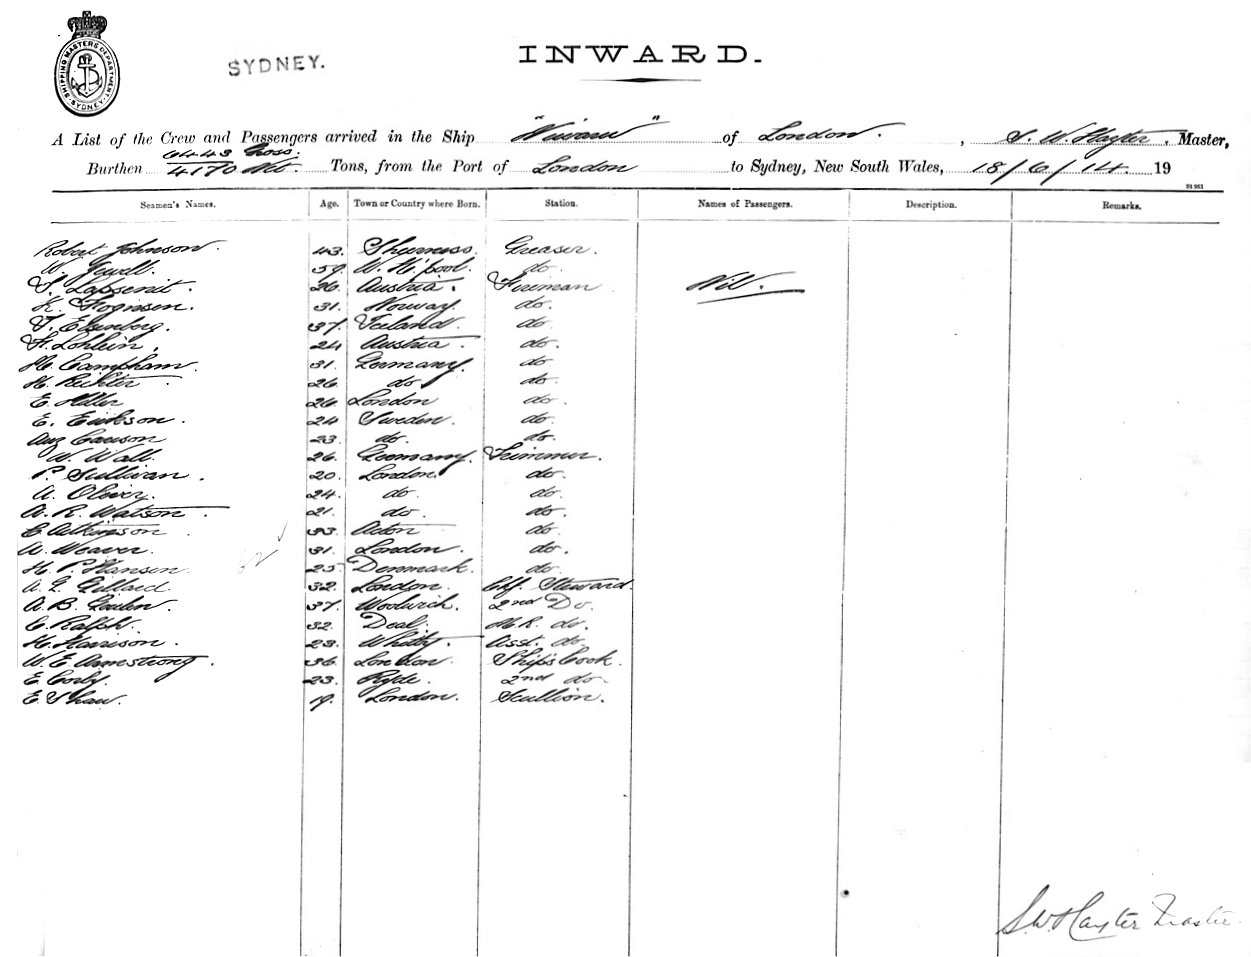 SHIPPING MASTERS DEPARTMENT SYDNEY
SYDNEY.
INWARD.
A List of the Crew and Passengers arrived in the Ship of London. , S. W. Hayter. Master,
6443 Gross.
Burthen 4170 Net. Tons, from the Port of London to Sydney, New South Wales, 18/6/14. 19
Seamen's Names. Age. Town or Country where Born. Station. Names of Passengers. Description. Remarks.
Robert Johnson. 43. Sheerness. Greaser.
W. Jewell. 59. W. H'pool. do.
26. Austria. Fireman Nil.
31. Norway. do.
37. Iceland. do.
F. Lohlein. 24 Austria. do.
31. Germany. do
H. Richter 26 do do
E. 26. London do.
E. Erikson. 24 Sweden. do.
23. do. do.
W. Wall 26. Germany. Trimmer.
P. Sullivan. 20. London. do.
A. Oliver. 24. do do.
A. R. Watson 21. do. do.
C. Atkinson 33. Acton do.
A. Weaver. 31. London. do.
H. P. Hansen. 25 Denmark. do
A. E. Gillard 32. London. Chf. Steward.
A. B. 37. Woolwich. 2nd Do.
C. Ralph. 32. Deal. M.R. do.
H. Harrison. 23. Whitby. Asst. do.
W. E. Armstrong. 36. London. Ship's Cook.
E. Corby. 23. Ryde. 2nd do
E. Shaw. 19. London. Scullion.
S.W. Hayter Master